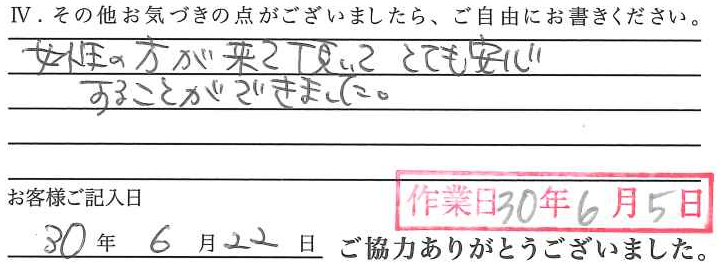 Ⅳ．その他お気づきの点がございましたら、ご自由にお書きください。
女性の方が来て頂いてとても安心
することができました。
お客様ご記入日
作業日30年6月5日
30年6月22日 ご協力ありがとうございました。